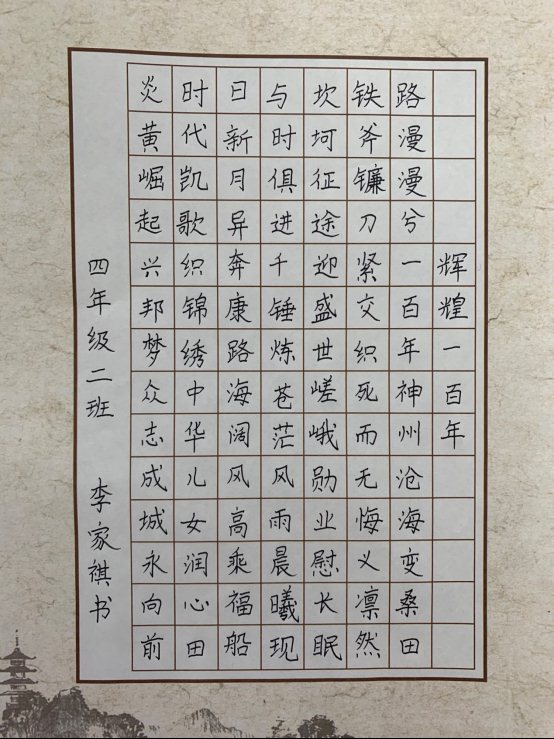 辉煌一百年
路漫漫兮一百年神州沧海变桑田
铁斧镰刀紧交织死而无悔义凛然
坎坷征途迎盛世嵯峨勋业慰长眠
与时俱进千锤炼苍茫风雨晨曦现
日新月异奔康路海阔风高乘福船
时代凯歌织锦绣中华儿女润心田
炎黄崛起兴邦梦众志成城永向前
四年级二班 李家祺书